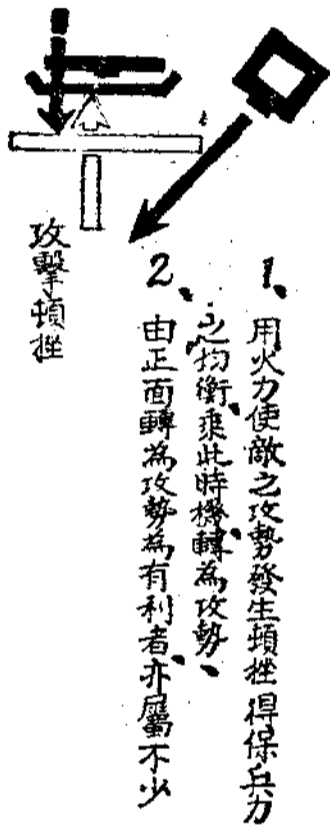 1、用火力使敵之攻勢發生頓挫得保兵力
之均衡、乘此時機、轉為攻勢、
2、由正面轉為攻勢為有利者、亦屬不少
攻擊頓挫